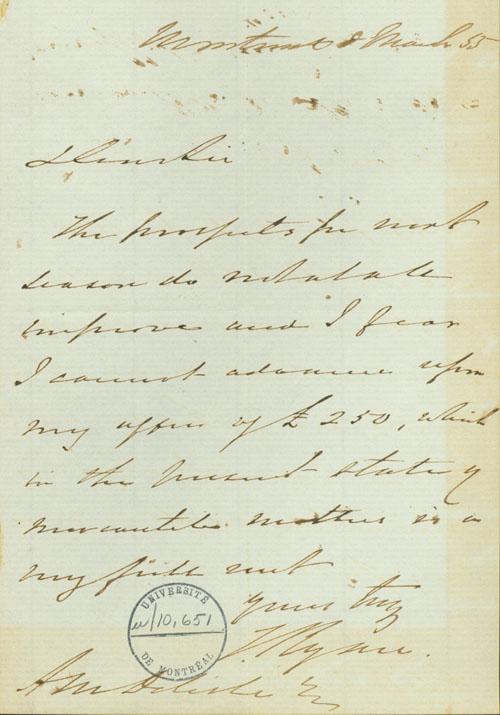 Montreal 8 March 55
Dear Sir
The prospects for next
season do not at all
improve and I fear
I cannot advance upon
my offer of £250, which
in the present state of
mercantile matters is in
my full rent
yours truly
J. Ryan.
A M Delisle Eq
UNIVERSITÉ
10,651
DE MONTRÉAL